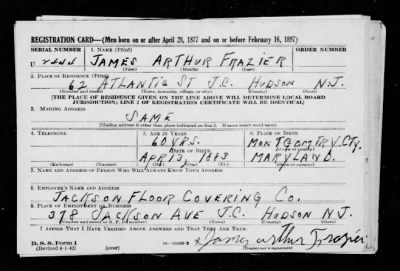 REGISTRATION CARD—(Men born on or after April 28, 1877 and on or before February 16, 1897)
SERIAL NUMBER 1. NAME (Print) ORDER NUMBER
U JAMES ARTHUR FRAZIER
(First) (Middle) (Last)
2. PLACE OF RESIDENCE (Print)
62 ATLANTIC ST J.C. HUDSON N.J.
(Number and street) (Town, township, village, or city) (County) (State)
[THE PLACE OF RESIDENCE GIVEN ON THE LINE ABOVE WILL DETERMINE LOCAL BOARD
JURISDICTION; LINE 2 OF REGISTRATION CERTIFICATE WILL BE IDENTICAL]
3. MAILING ADDRESS
SAME
[Mailing address if other than place indicated on line 2. If same insert word same]
4. TELEPHONE 5. AGE IN YEARS 6. PLACE OF BIRTH
60 YRS. MONTGOMTRY. CTY.
DATE OF BIRTH (Town or county)
APR 13 1883 MARYLAND.
(Exchange) (Number) (Mo.) (Day) (Yr.) (State or country)
7. NAME AND ADDRESS OF PERSON WHO WILL ALWAYS KNOW YOUR ADDRESS
8. EMPLOYER'S NAME AND ADDRESS
JACKSON FLOOR COVERING CO.
9. PLACE OF EMPLOYMENT OR BUSINESS
378 JACKSON AVE J.C. HUDSON N.J.
(Number and street or R. F. D. number) (Town) (County) (State)
I AFFIRM THAT I HAVE VERIFIED ABOVE ANSWERS AND THAT THEY ARE TRUE.
D. S. S. Form 1
(Revised 4-1-42) (over) James Arthur Frazier